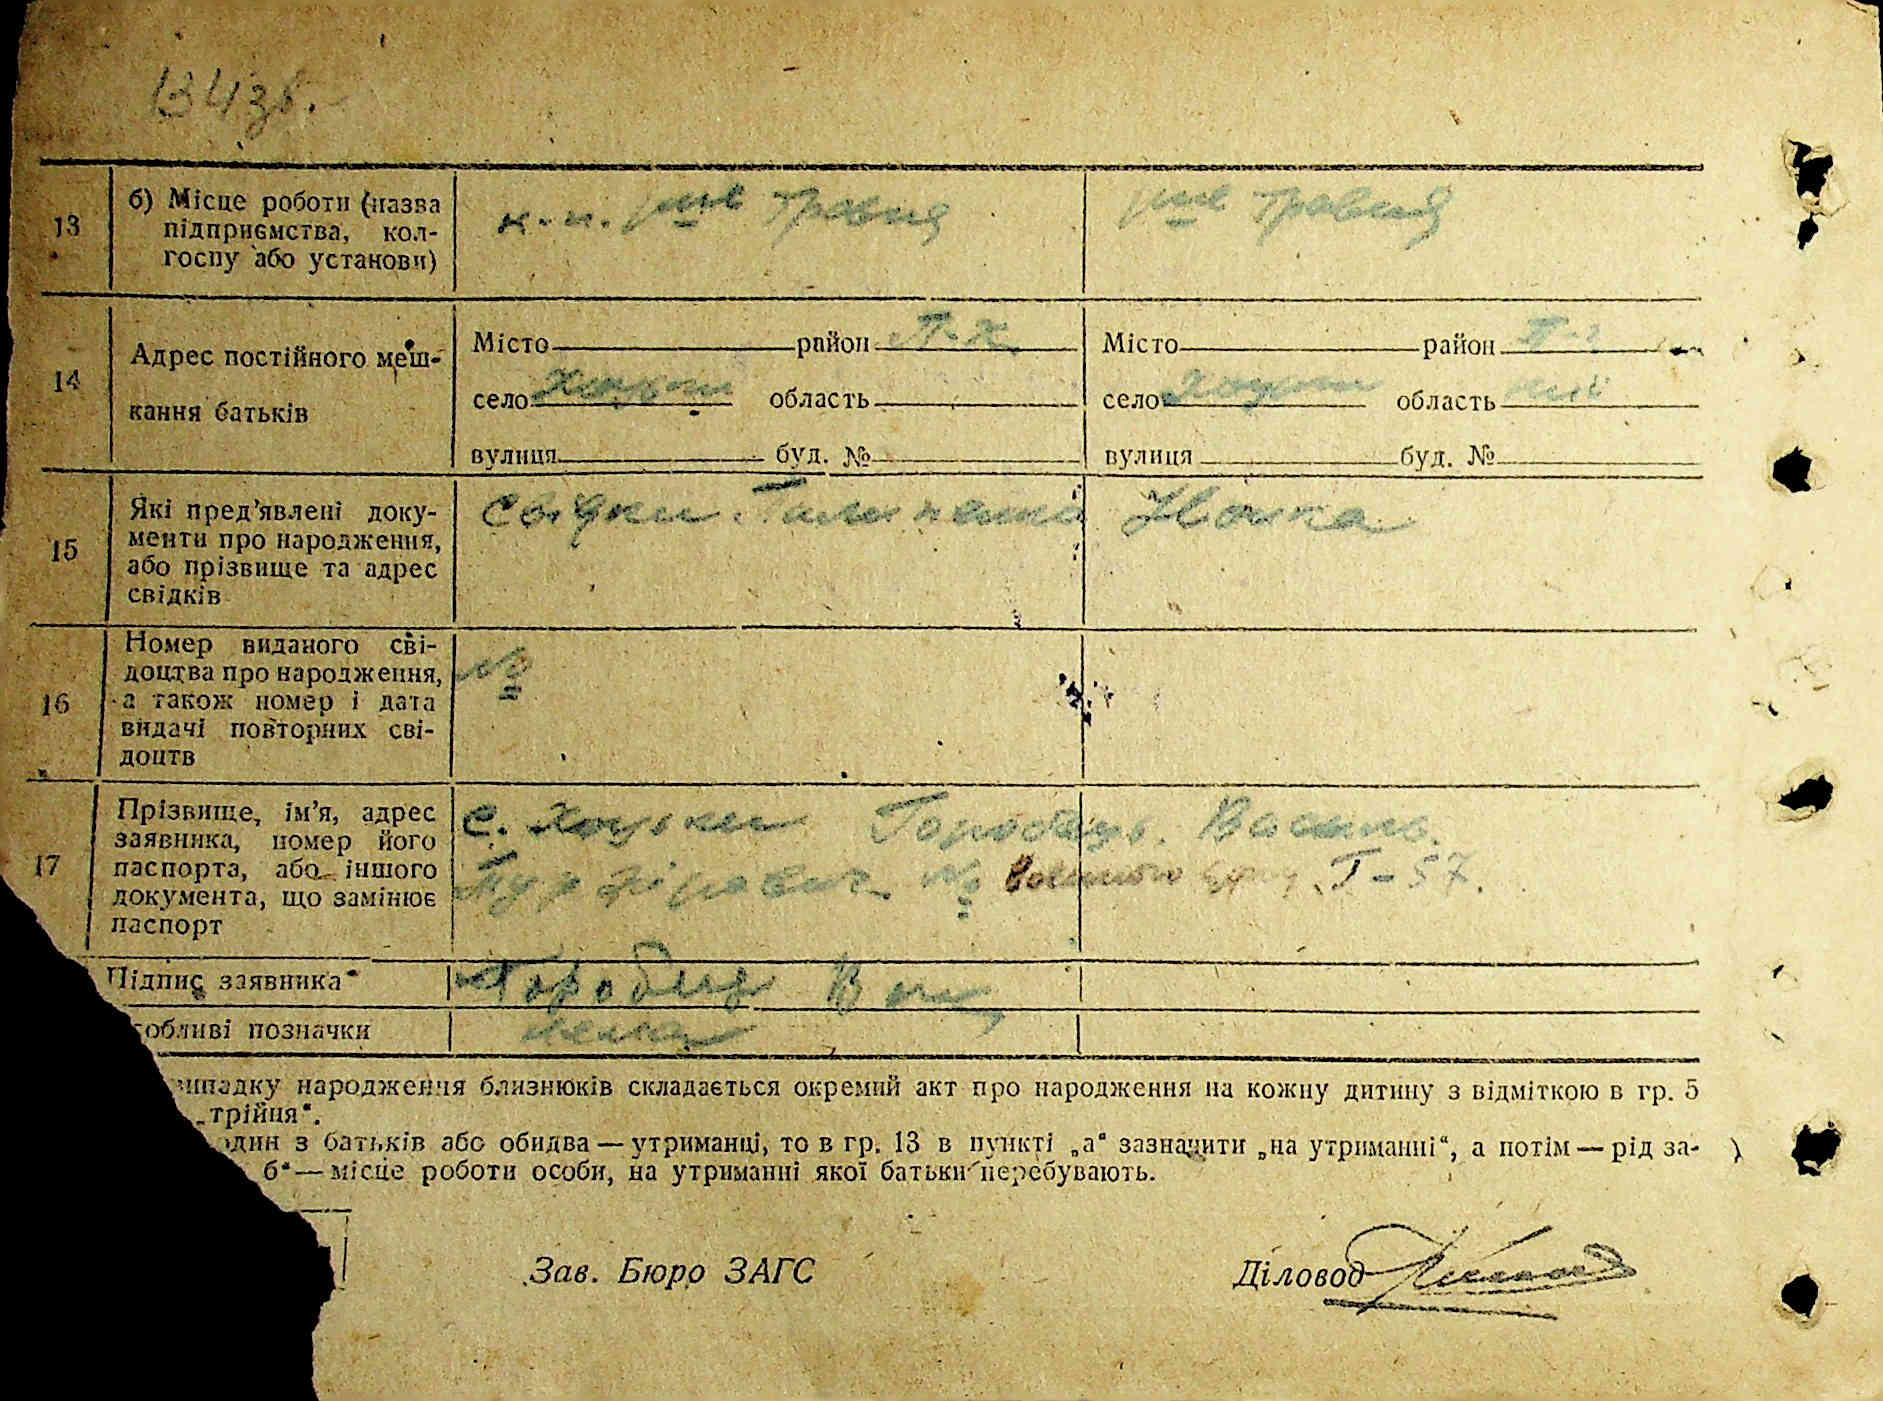 134зв.
13
б) Місце роботи (назва
підприємства, кол-
госпу або установи)
к-п. травня
травня
14
Адрес постійного меш-
кання батьків
Місто район П-Х
село Хоцьки область
вулиця буд. №
Місто район П-Х
село Хоцьки область
вулиця буд. №
15
Які пред'явлені доку-
менти про народження,
або прізвище та адрес
свідків
Свідки
16
Номер виданого сві-
доцтва про народження,
а також номер і дата
видачі повторних сві-
доцтв
№
17
Прізвище, ім'я, адрес
заявника, номер його
паспорта, або іншого
документа, що замінює
паспорт
с. Хоцьки Городець Василь
№ Т-57.
Підпис заявника
Городець Вас
обливі позначки
нема
випадку народження близнюків складається окремий акт про народження на кожну дитину з відміткою в гр. 5
„трійня“.
один з батьків або обидва — утриманці, то в гр. 13 в пункті „а“ зазначити „на утриманні“, а потім — рід за-
б“ — місце роботи особи, на утриманні якої батьки перебувають.
Зав. Бюро ЗАГС
Діловод